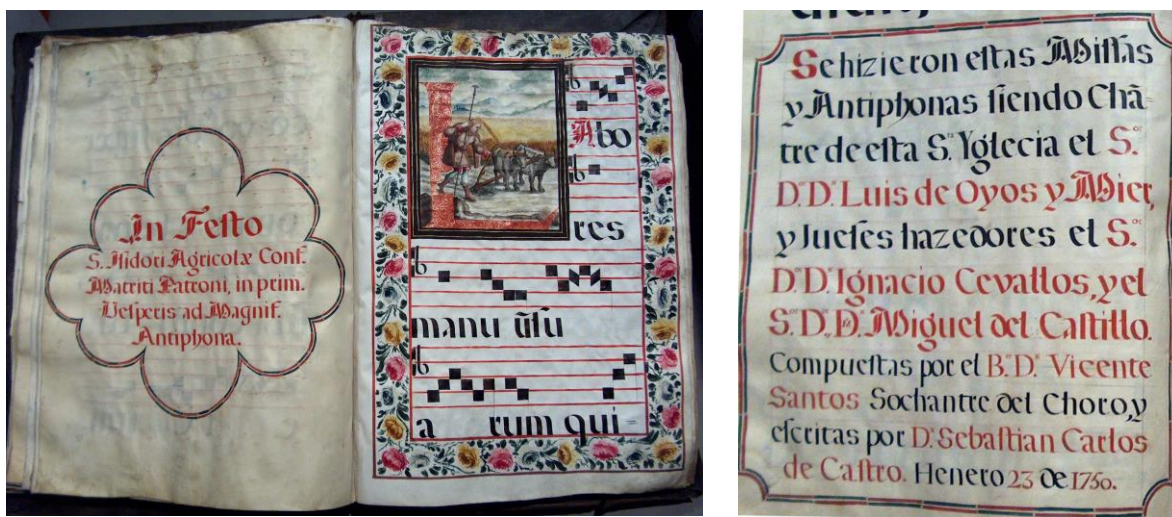 In Feſto
S. Iſidori Agricolæ Conf.
Matriti Patroni, in prim.
Veſperis ad Magnif.
Antiphona.
LAbo
res
manu ũtu
a rum qui
Se hizieron eſtas Miſſas
y Antiphonas ſiendo Chã-
tre de eſta S.ᵗᵃ Yglecia el S.ᵒʳ
D.ʳ D.ⁿ Luis de Oyos y Mier,
y Jueſes hazedores el S.ᵒʳ
D.ʳ D. Ignacio Cevallos, y el
S.ʳ D.ʳ D.ⁿ Miguel del Caſtillo.
Compueſtas por el B.ʳ D.ⁿ Vicente
Santos Sochantre del Choro, y
eſcritas por D.ⁿ Sebaſtian Carlos
de Caſtro. Henero 23 de 1750.